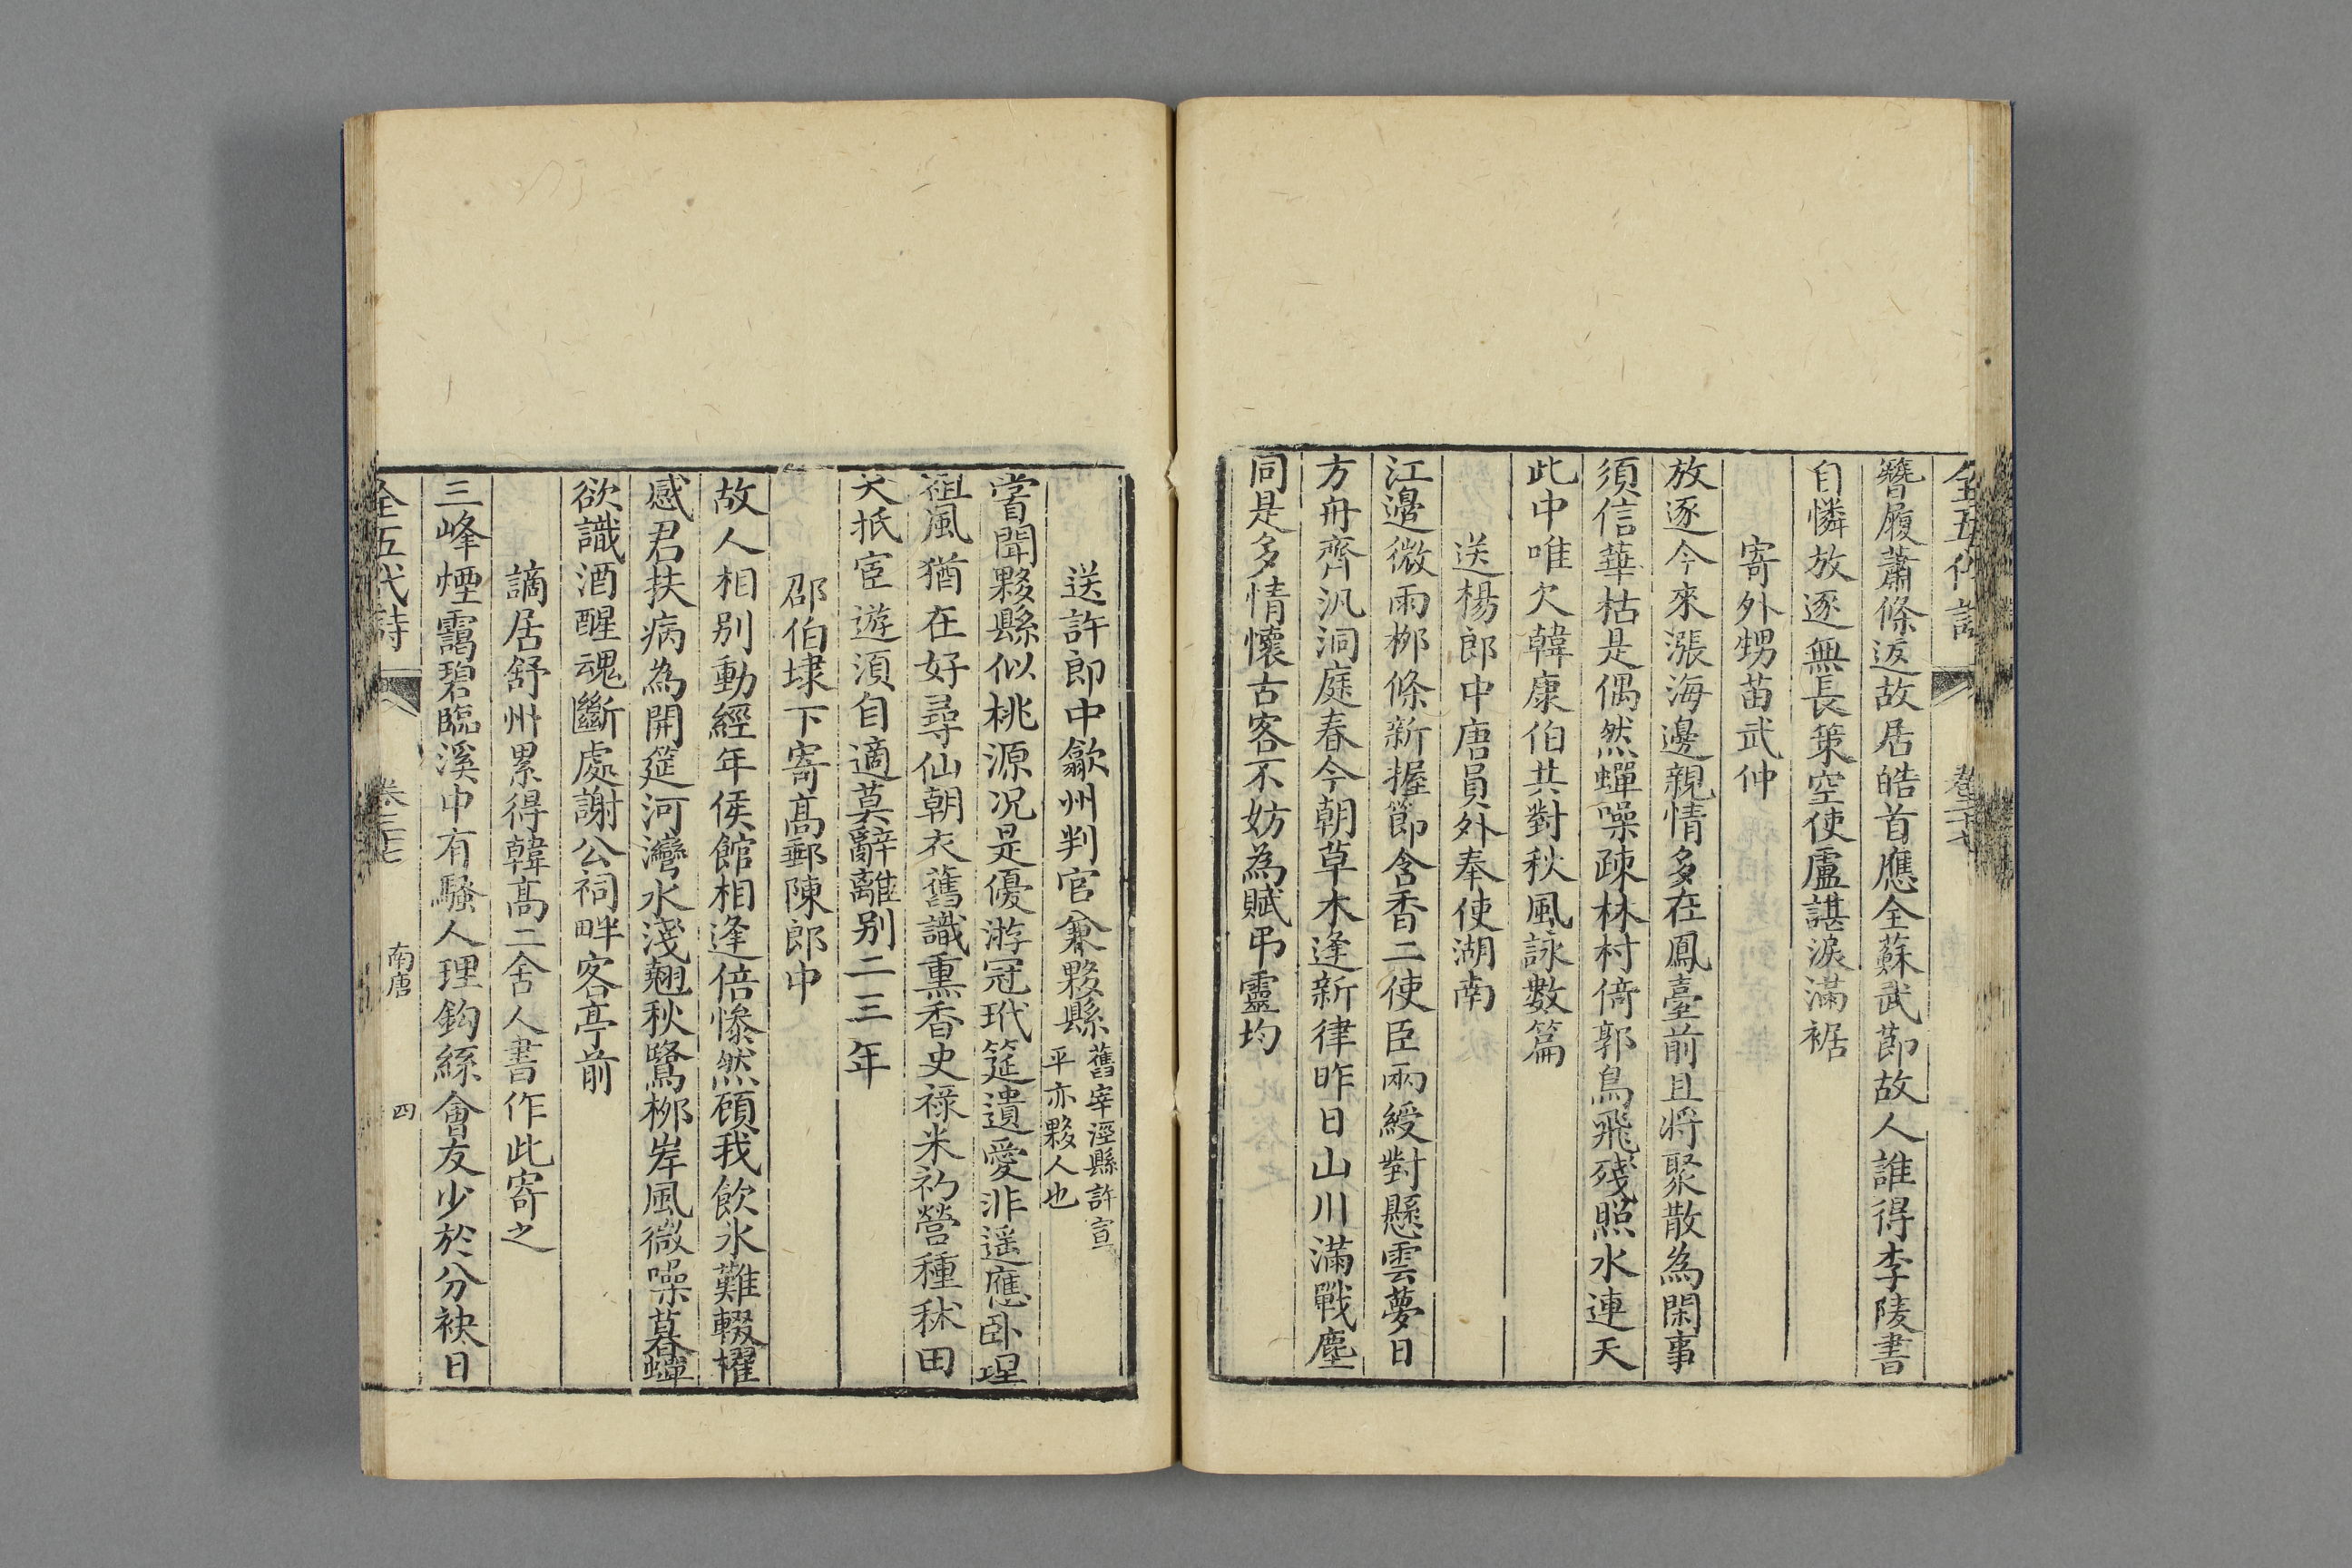 全五代詩
簪履蕭條返故居皓首應全蘇武節故人誰得李陵書
自憐放逐無長策空使盧諶淚滿裾
寄外甥苗武仲
放逐今來漲海邊親情多在鳳臺前且將聚散為閑事
須信華枯是偶然蟬噪疎林村倚郭鳥飛殘照水連天
此中唯欠韓康伯共對秋風詠數篇
送楊郎中唐員外奉使湖南
江邊微雨栁條新握節含香二使臣兩綬對懸雲夢日
方舟齊汎洞庭春今朝草木逢新律昨日山川滿戰塵
同是多情懷古客不妨為賦弔靈均
送許郎中歙州判官兼黟縣
舊宰涇縣許宣
平亦黟人也
嘗聞黟縣似桃源况是優游冠玳筵遺愛非遥應卧理
祖風猶在好尋仙朝衣舊識熏香史祿米初營種秫田
大抵宦遊須自適莫辭離別二三年
邵伯埭下寄高郵陳郎中
故人相別動經年侯館相逢倍慘然顧我飲冰難輟櫂
感君扶病為開筵河灣水淺翹秋鷺栁岸風微噪暮蟬
欲識酒醒魂斷處謝公祠畔客亭前
謫居舒州累得韓高二舍人書作此寄之
三峰煙靄碧臨溪中有騷人理釣絲會友少於分袂日
全五代詩
卷三十七
南唐
四